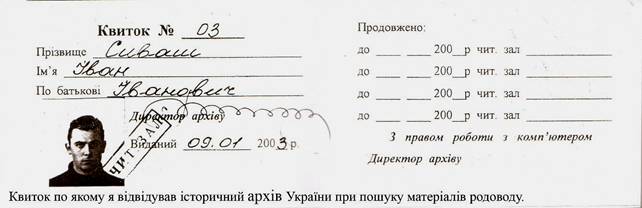 Квиток № 03
Прізвище Сиваш
Ім'я Іван
По батькові Іванович
Директор архіву
ЧИТ. ЗАЛ
Виданий 09.01 2003 р.
Продовжено:
до ___ ___ 200__р чит. зал ________
до ___ ___ 200__р чит. зал ________
до ___ ___ 200__р чит. зал ________
до ___ ___ 200__р чит. зал ________
З правом роботи з комп'ютером
Директор архіву
Квиток по якому я відвідував історичний архів України при пошуку матеріалів родоводу.